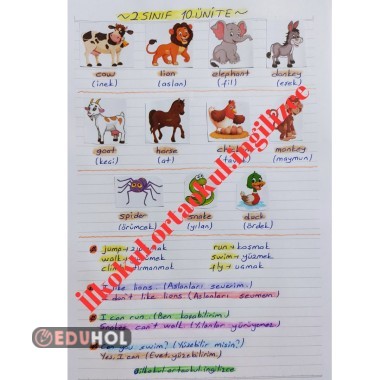 ~2.SINIF 10.ÜNİTE~
cow lion elephant donkey
(inek) (aslan) (fil) (eşek)
goat horse chicken monkey
(keçi) (at) (tavuk) (maymun)
spider snake duck
(örümcek) (yılan) (ördek)
jump→ run→ koşmak
walk→ swim→ yüzmek
climb→ tırmanmak fly→ uçmak
I like lions. (Aslanları severim.)
I don't like lions (Aslanları sevmem.)
I can run. (Ben koşabilirim.)
Snakes can't walk. (Yılanlar yürüyemez.)
Can you swim? (Yüzebilir misin?)
Yes, I can (Evet, yüzebilirim.)
ilkokul.ortaokul.ingilizce
EDUHOL
@ilkokul.ortaokul.ingilizce